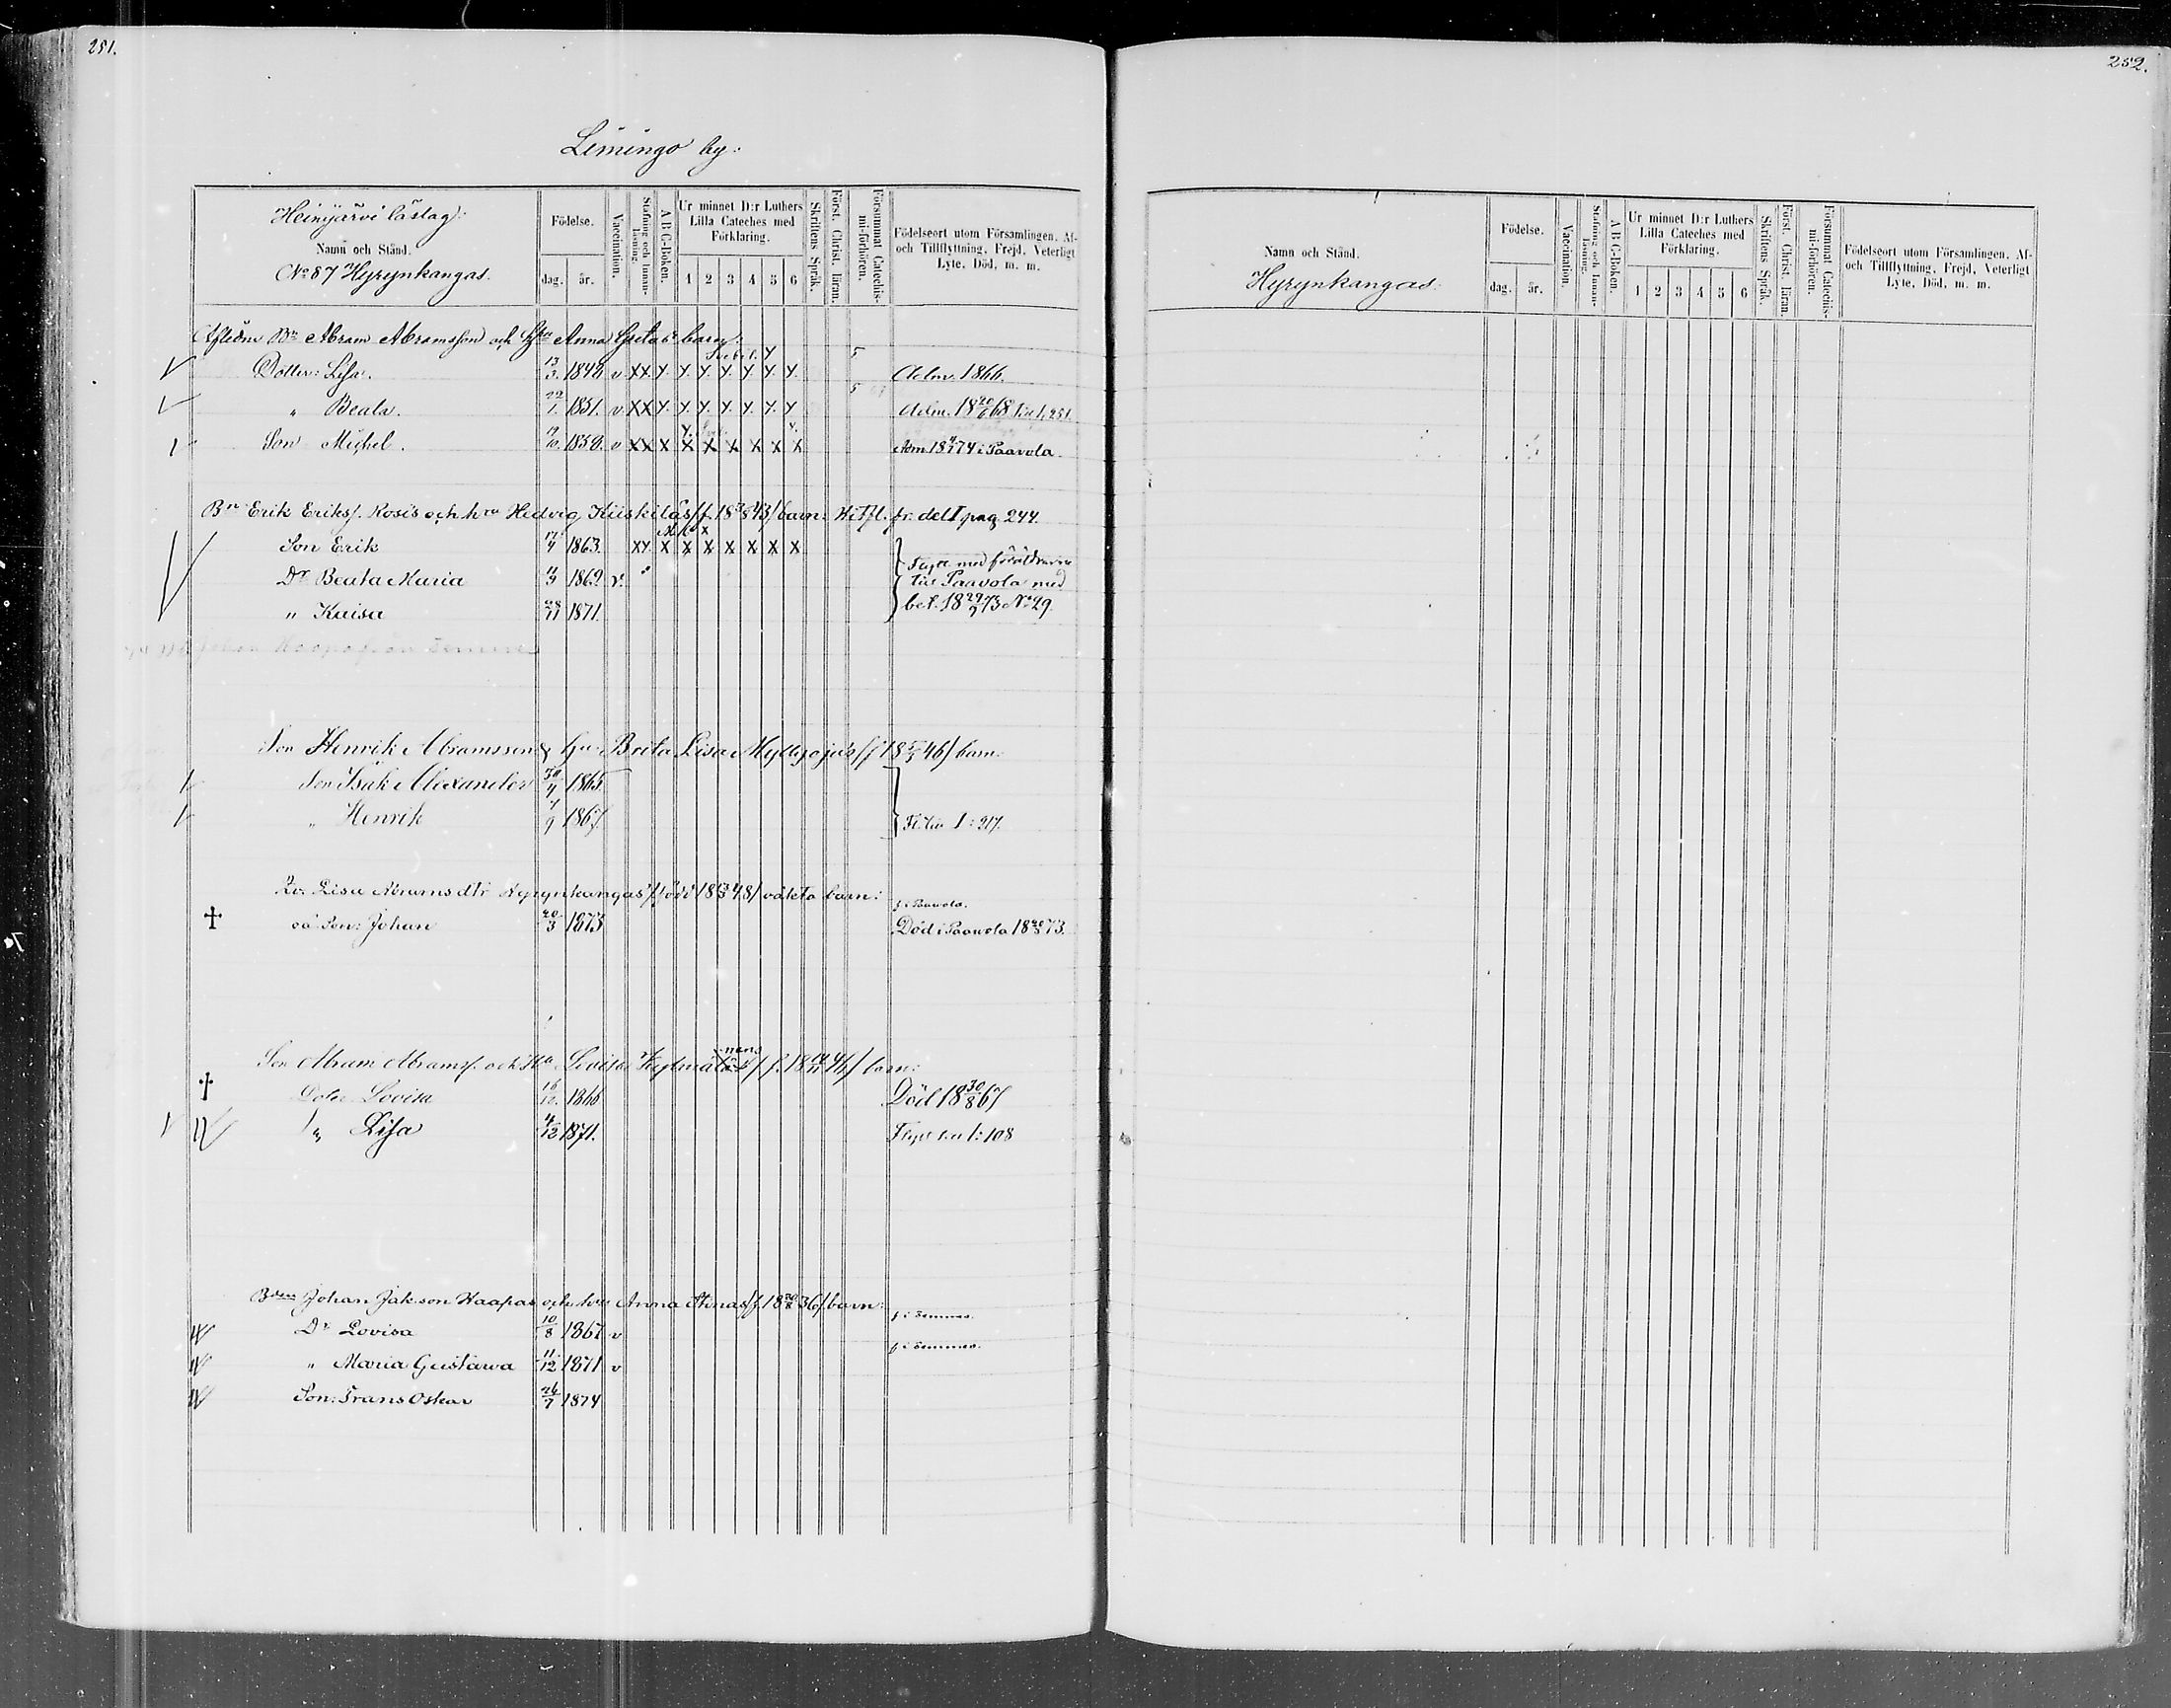 251.
Limingo by:
Heinijärvi läslag:
Namn och Stånd.
No 87 Hyrynkangas.
Födelse.
dag. år.
Vaccination.
Stafning och Innanläsning.
A B C-Boken.
Ur minnet D:r Luthers Lilla Cateches med Förklaring.
1 2 3 4 5 6
Skriftens Språk.
Först. Christ. läran.
Försummat Catechismi-förhören.
Födelseort utom Församlingen, Af- och Tillflyttning, Frejd, Veterligt Lyte, Död, m. m.
Aflidne Bn Abram Abramsson och Hu Anna Gretas barn:
Dotter: Lisa. 13/3. 1848 v XX y. y. y. y. y. y. y. 5 Adm. 1866.
" Beata. 22/1. 1851. v XX y. y. y. y. y. y. y. 5 Adm. 18 20/6 68 1, 251
Son Michel. 19/10. 1858. v XX X X X X X X X Adm 18 74 i Paavola
Bn Erik Eriks. Rosis och hu Hedvig Kiiskiläs /f. 18 43/ barn: Hitfl. fr. del I pag 244.
Son Erik 17/4 1863. XX X X X X X X X
Dr Beata Maria 11/3 1869. v.
" Kaisa 28/11 1871.
Flytt med föräldrarne
till Paavola med
bet. 18 29/9 73 No 29.
Son Henrik Abramsson & hu Brita Lisa Myllyojas /f 18 46/ barn.
Son Isak Alexander 30/4 1865
" Henrik 7/9 1867.
Fl. till I: 217.
Lisa Abramsdtr Hyrynkangas' /född 18 48/ oäkta barn:
f. i Paavola.
oä Son: Johan 20/3 1873 Död i Paavola 18 73.
Son Abram Abrams. och Hu Lovisa /f. 18 46/ barn:
Dotter Lovisa 16/12. 1866 Död 18 30/8 67
" Lisa 4/12 1871. Flytt till I: 108
Johan Jakson Haapas och hus Anna Stinas /f. 18 36/ barn:
f. i Temmes.
Dr Lovisa 10/8 1867 v
f. i Temmes.
" Maria Gustawa 11/12 1871 v
Son: Frans Oskar 26/7 1874
252.
Namn och Stånd.
Hyrynkangas.
Födelse.
dag. år.
Vaccination.
Stafning och Innanläsning.
A B C-Boken.
Ur minnet D:r Luthers Lilla Cateches med Förklaring.
1 2 3 4 5 6
Skriftens Språk.
Först. Christ. läran.
Försummat Catechismi-förhören.
Födelseort utom Församlingen, Af- och Tillflyttning, Frejd, Veterligt Lyte, Död, m. m.